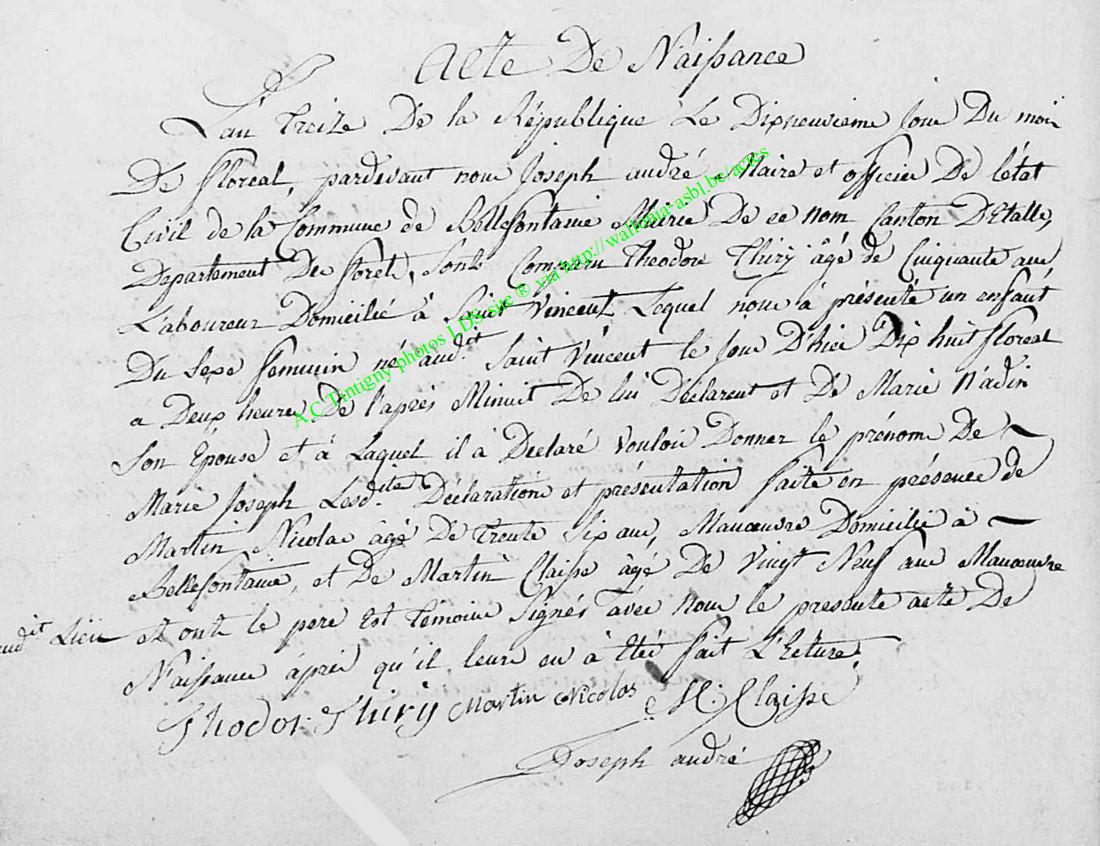 Acte De Naissance
L'an treize De la République Le Dixneuvieme Jour Du mois
De floreal, pardevant nous Joseph andré Maire et officier De l'état
Civil de la Commune de Bellefontaine Mairie De ce nom Canton D'Etalle,
Departement De forêt, sont Comparu theodore Thiry âgé de Cinquante ans
Laboureur Domicilié à Saint Vincent Lequel nous à présenté un enfant
Du Sexe feminin né audit Saint Vincent le Jour D'hier Dix huit floreal
à Deux heure De l'après Minuit De lui Déclarent et De Marie Nadin
Son Epouse et à Laquel il à Déclaré Vouloir Donner le prénom De
Marie Joseph Lesdite Déclaration et présentation faite en présence de
Martin Nicolas âgé De trente Six ans, Manœuvre Domicilié à
Bellefontaine, et De Martin Claisse âgé De Vingt Neuf ans Manœuvre
audit Lieu et ont le pere Est temoins Signés avec Nous le presente acte De
Naissance âprès qu'il leurs en à Eté fait L'ecture.
Thodor Thiry Martin Nicolas M: Claisse
Joseph andré
A.C Tintigny photos LDS site ® via http://wallonia-asbl.be/actes